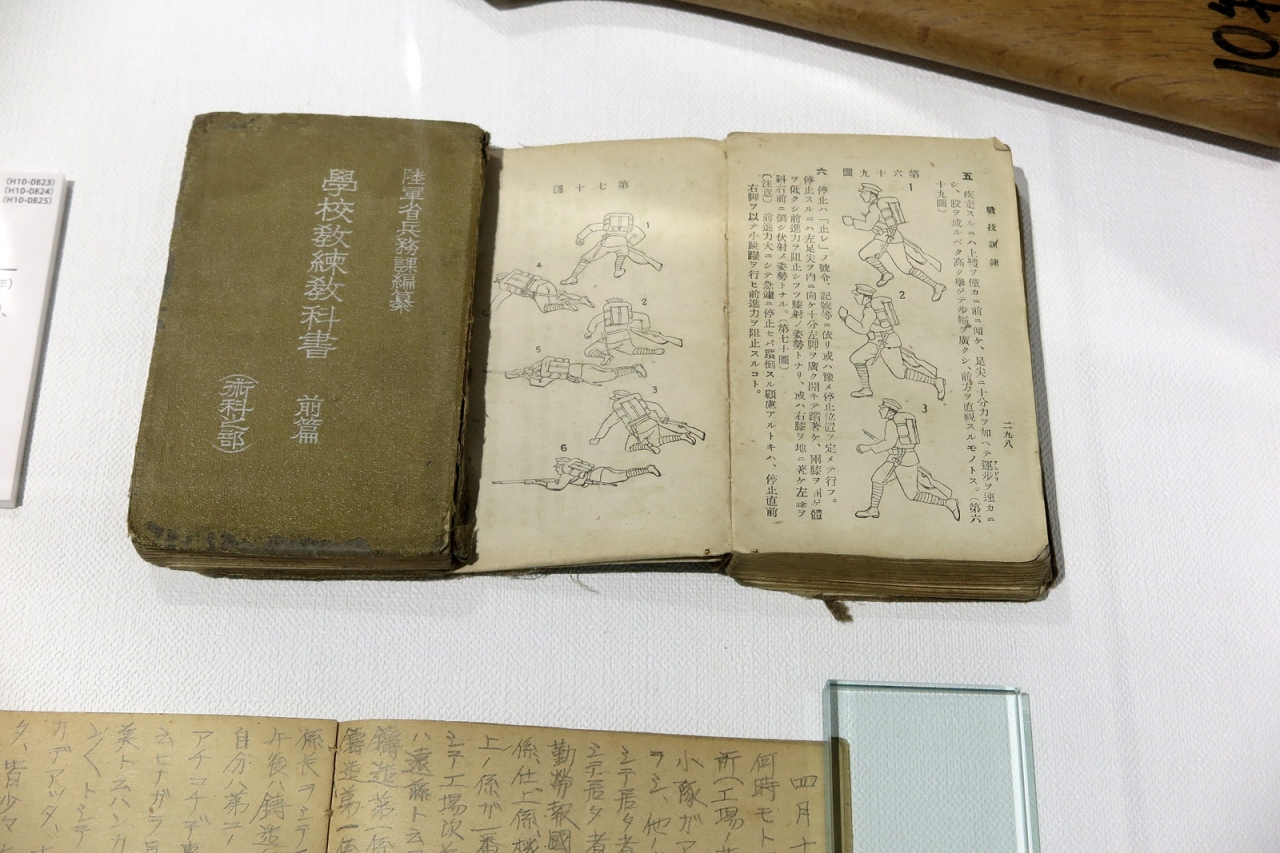 (H10-0823)
(H10-0824)
(H10-0825)
陸軍省兵務課編纂
學校教練教科書 前篇
(術科之部)
第七十圖
1
2
3
4
5
6
戰技訓練
二九八
五 疾走スルニハ上體ヲ僅カニ前ニ傾ケ、足尖ニ十分力ヲ加ヘテ運歩ヲ速カニ
シ、股ヲ成ルベク高ク擧ゲテ歩幅ヲ廣クシ、前方ヲ直視スルモノトス。(第六
十九圖)
第六十九圖
1
2
3
六 停止ハ「止レ」ノ號令、記號等ニ依リ或ハ豫メ停止位置ヲ定メテ行フ。
停止スルニハ左足尖ヲ内ニ向ケ十分左脚ヲ廣ク開キテ踏著ケ、兩膝ヲ屈ゲ體
ヲ低クシ前進力ヲ阻止シツツ膝射ノ姿勢トナリ、或ハ右膝ヲ地ニ著ケ左床ヲ
斜右前ニ倒シ伏射ノ姿勢トナル。(第七十圖)
(注意) 前進力大ニシテ急遽ニ停止セバ躓倒スル顧慮アルトキハ、停止直前
右脚ヲ以テ小跳躍ヲ行ヒ前進力ヲ阻止スルコト。
107
四月十
何時モト
所(工場
小隊ガア
ヲシ、他ノ
シテ居タ者
シテ居タ者
勤勞報國
係、仕上係、
上ノ係ガ一番
シテ工場次
ハ遠藤ト云
鑄造第一係
鑄造第一係
係長ヲシテ
午後、鑄造
自分ハ第一
アチコチデ
云ヒナガラ
英ドスハンカ
トシテ
カデアッタ、
タ、皆少マ